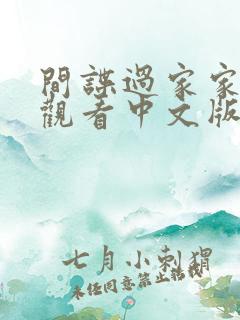 間諜過家家
觀看中文版
七月小刺猬
未任同意禁止轉載